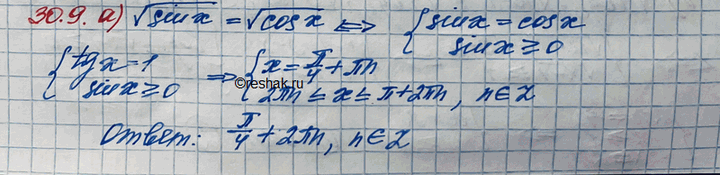 30.9. а) √sinx = √cosx <=> { sinx = cosx
sinx ≥ 0
{ tgx = 1
sinx ≥ 0 => { x = π/4 + πn
2πn ≤ x ≤ π + 2πn, n ∈ Z
©reshak.ru
Ответ: π/4 + 2πn, n ∈ Z